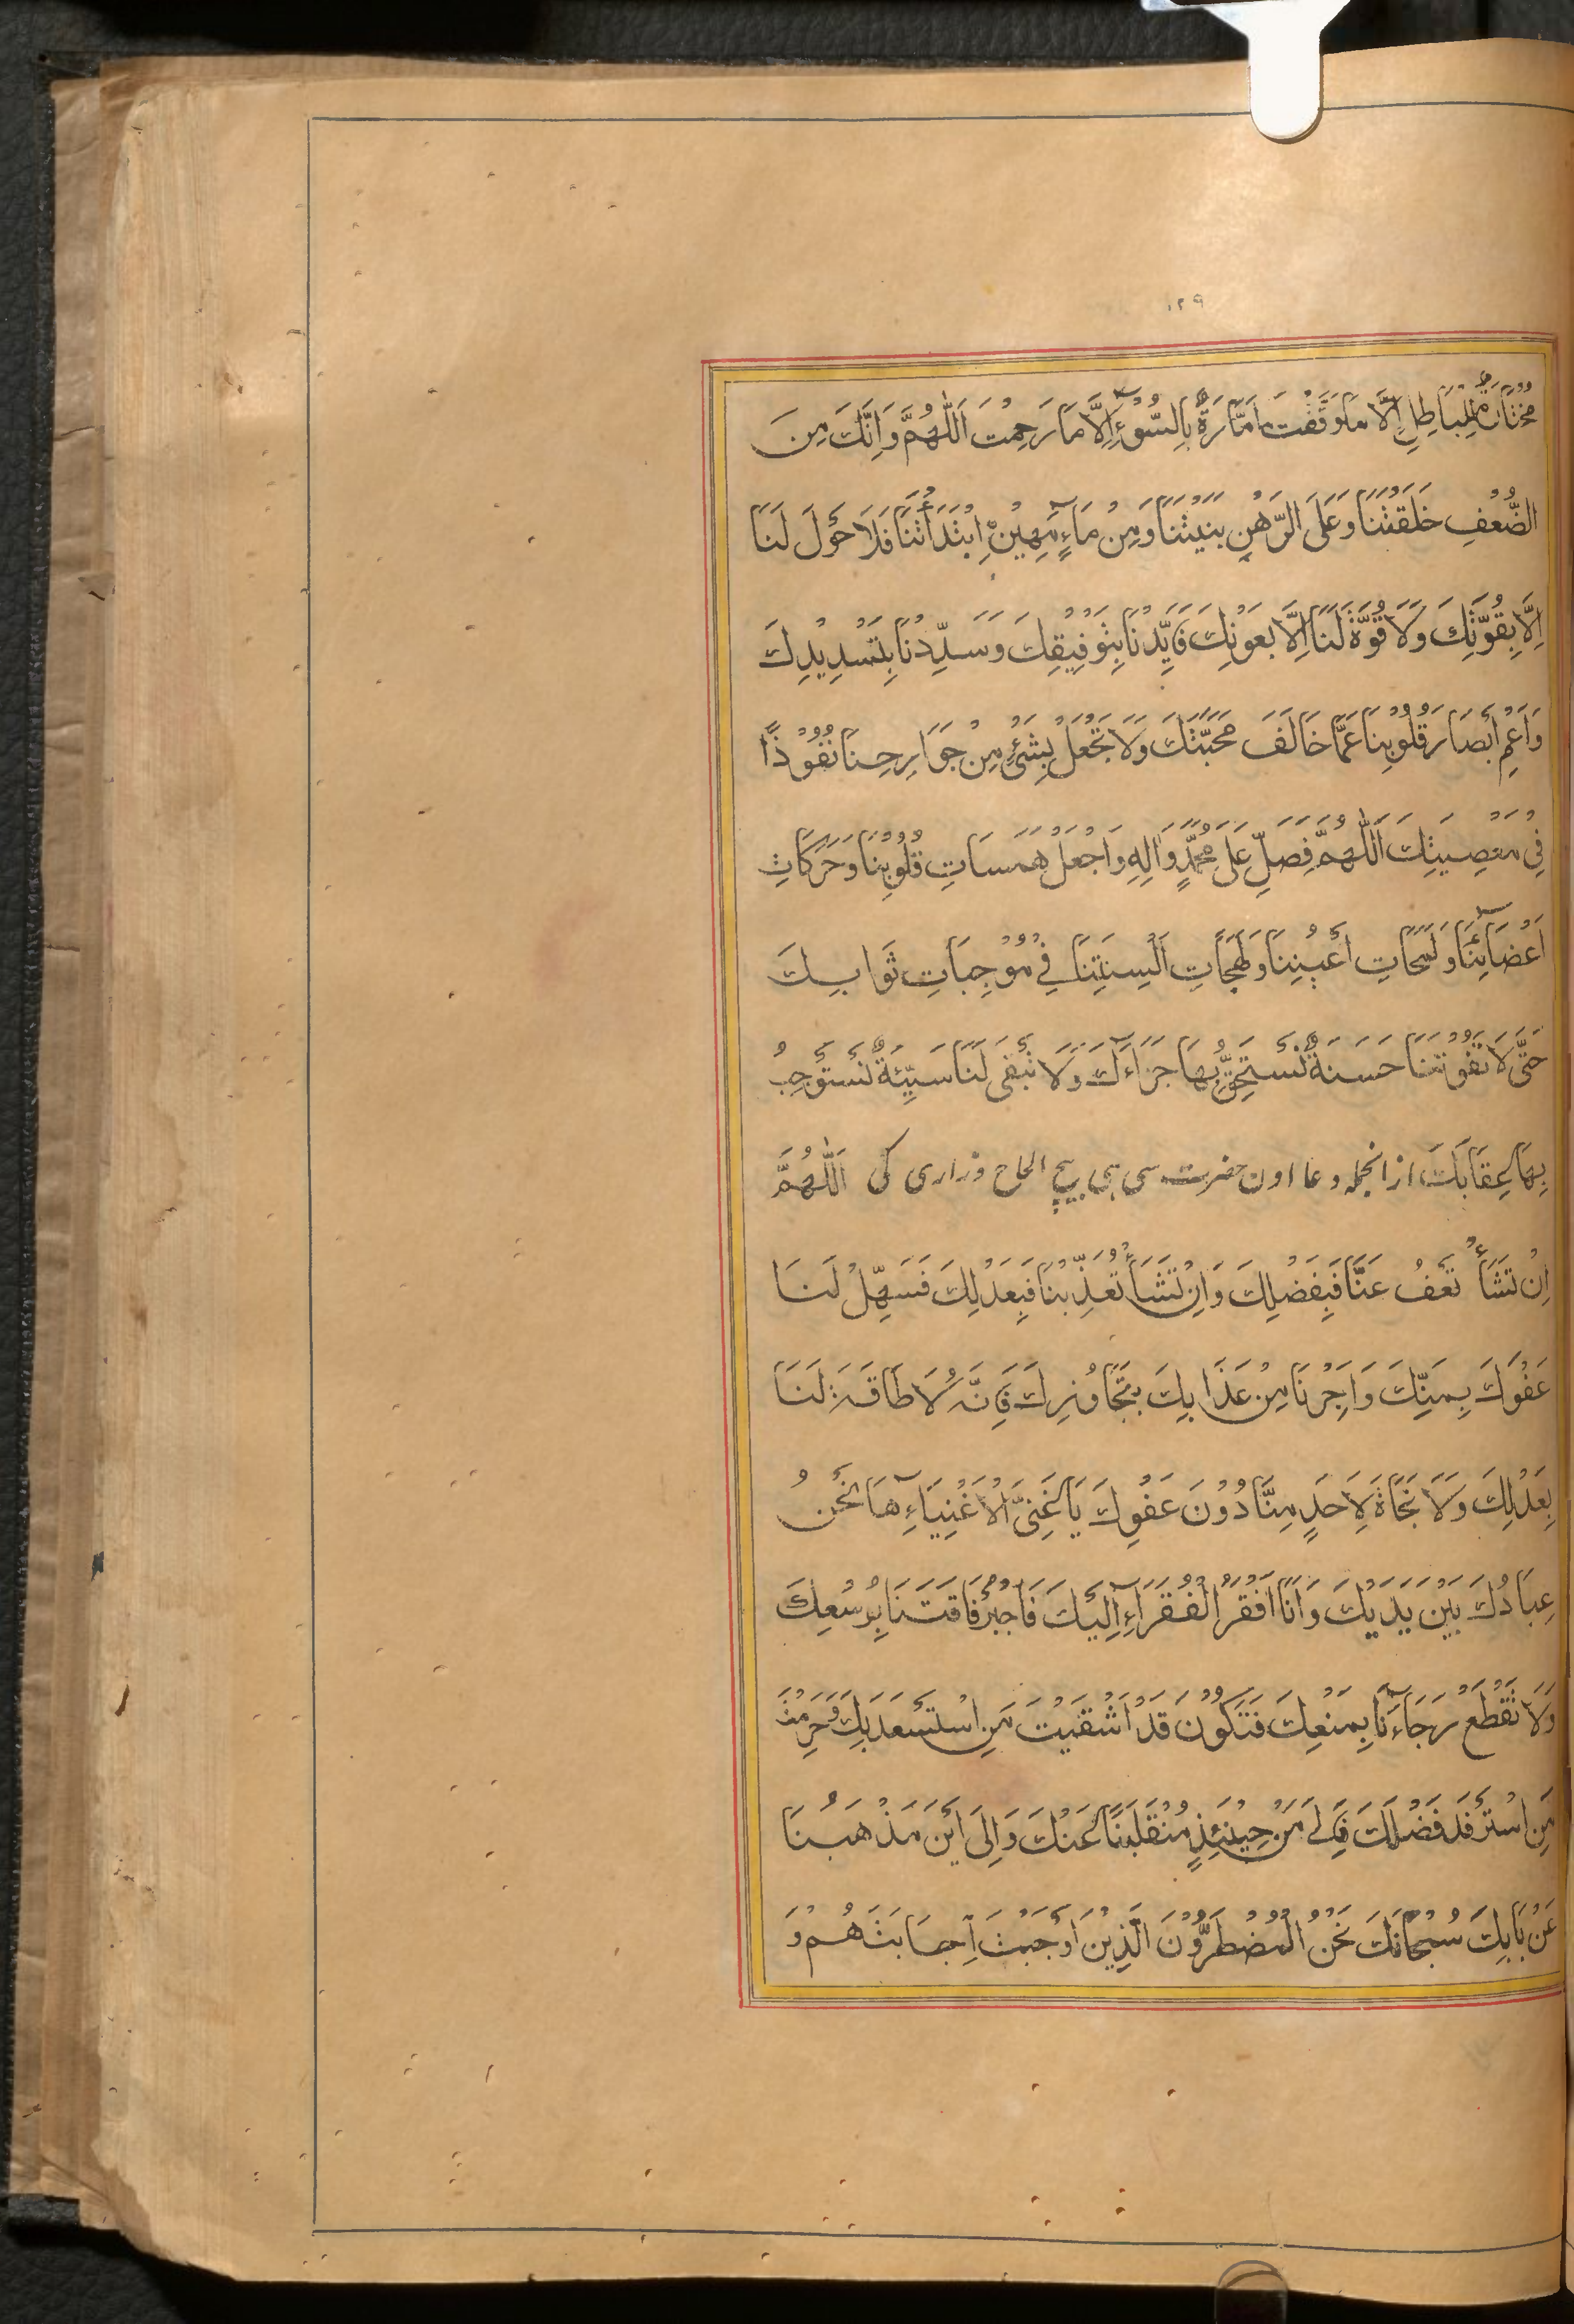 ۱۲۹
مُخْتَارَةٌ لِلْبَاطِلِ اِلَّا مَا وَفَّقْتَ اَمَّارَةٌ بِالسُّوْٓءِ اِلَّا مَا رَحِمْتَ اَللّٰهُمَّ وَاِنَّكَ مِنَ
الضُّعْفِ خَلَقْتَنَا وَعَلَى الْرَهْنِ بَنَيْتَنَا وَمِنْ مَآءٍ مَهِيْنٍ اِبْتَدَأْتَنَا فَلَا حَوْلَ لَنَا
اِلَّا بِقُوَّتِكَ وَلَا قُوَّةَ لَنَا اِلَّا بِعَوْنِكَ فَاَيِّدْنَا بِتَوْفِيْقِكَ وَسَدِّدْنَا بِتَسْدِيْدِكَ
وَاَعْمِ اَبْصَارَ قُلُوْبِنَا عَمَّا خَالَفَ مَحَبَّتَكَ وَلَا تَجْعَلْ بِشَیْءٍ مِنْ جَوَارِحِنَا نُفُوْذًا
فِيْ مَعْصِيَتِكَ اَللّٰهُمَّ فَصَلِّ عَلٰى مُحَمَّدٍ وَاٰلِهٖ وَاجْعَلْ هَمَسَاتِ قُلُوْبِنَا وَحَرَكَاتِ
اَعْضَآئِنَا وَلَمَحَاتِ اَعْيُنِنَا وَلَهَجَاتِ اَلْسِنَتِنَا فِيْ مُوْجِبَاتِ ثَوَابِكَ
حَتّٰى لَا تَفُوْتَنَا حَسَنَةٌ نَسْتَحِقُّ بِهَا جَزَآءَكَ وَلَا تَبْقٰى لَنَا سَيِّئَةٌ نَسْتَوْجِبُ
بِهَا عِقَابَكَ ازانجملہ دعا اون حضرت سی ہی بیچ الحاح وزاری کی اَللّٰهُمَّ
اِنْ تَشَأْ تَعْفُ عَنَّا فَبِفَضْلِكَ وَاِنْ تَشَأْ تُعَذِّبْنَا فَبِعَدْلِكَ فَسَهِّلْ لَنَا
عَفْوَكَ بِمَنِّكَ وَاَجِرْنَا مِنْ عَذَابِكَ بِتَجَاوُزِكَ فَاِنَّهٗ لَا طَاقَةَ لَنَا
بِعَدْلِكَ وَلَا نَجَاةَ لِاَحَدٍ مِنَّا دُوْنَ عَفْوِكَ يَا غَنِيَّ الْاَغْنِيَآءِ هَا نَحْنُ
عِبَادُكَ بَيْنَ يَدَيْكَ وَاَنَا اَفْقَرُ الْفُقَرَآءِ اِلَيْكَ فَاجْبُرْ فَاقَتَنَا بِوُسْعِكَ
وَلَا تَقْطَعْ رَجَآءَنَا بِمَنْعِكَ فَتَكُوْنَ قَدْ اَشْقَيْتَ مَنِ اسْتَسْعَدَ بِكَ وَحَرَمْتَ
مَنِ اسْتَرْفَدَ فَضْلَكَ فَاِلٰى مَنْ حِيْنَئِذٍ مُنْقَلَبُنَا عَنْكَ وَاِلٰى اَيْنَ مَذْهَبُنَا
عَنْ بَابِكَ سُبْحَانَكَ نَحْنُ الْمُضْطَرُّوْنَ الَّذِيْنَ اَوْجَبْتَ اِجَابَتَهُمْ وَ